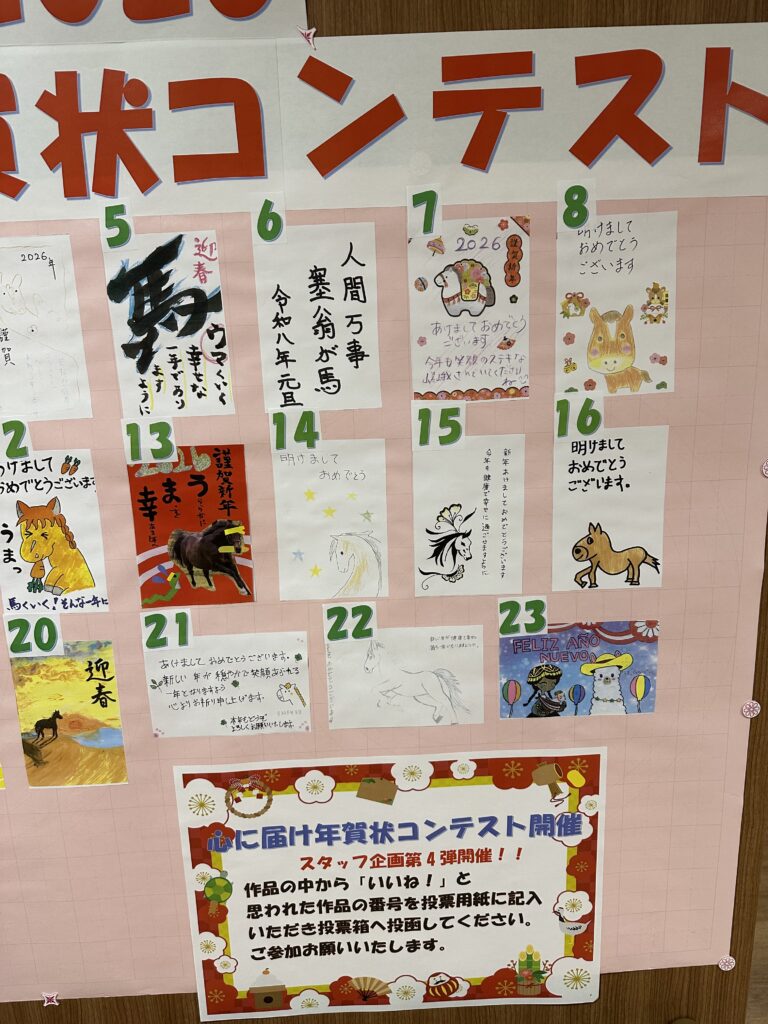 賀状コンテスト
2026年
謹賀
5
迎春
馬
ウマくいく
幸せな
一年であり
ます
ように
6
人間万事
塞翁が馬
令和八年元旦
7
2026
謹賀新年
あけましておめでとう
ございます
今年も笑顔のステキな
8
明けまして
おめでとう
ございます
2
あけまして
おめでとうございます
うまっ
馬くいく!そんな一年に
13
2026
謹賀新年
うららかに
まことを
幸
14
明けまして
おめでとう
15
新年あけましておめでとうございます
今年も健康で幸せに過ごせますように
16
明けまして
おめでとう
ございます。
20
迎春
21
あけましておめでとうございます。
新しい年が穏やかで笑顔あふれる
一年となりますよう
心よりお祈り申し上げます。
本年もどうぞ
よろしくお願いいたします。
22
23
FELIZ AÑO
NUEVO
心に届け年賀状コンテスト開催
スタッフ企画第4弾開催!!
作品の中から「いいね!」と
思われた作品の番号を投票用紙に記入
いただき投票箱へ投函してください。
ご参加お願いいたします。